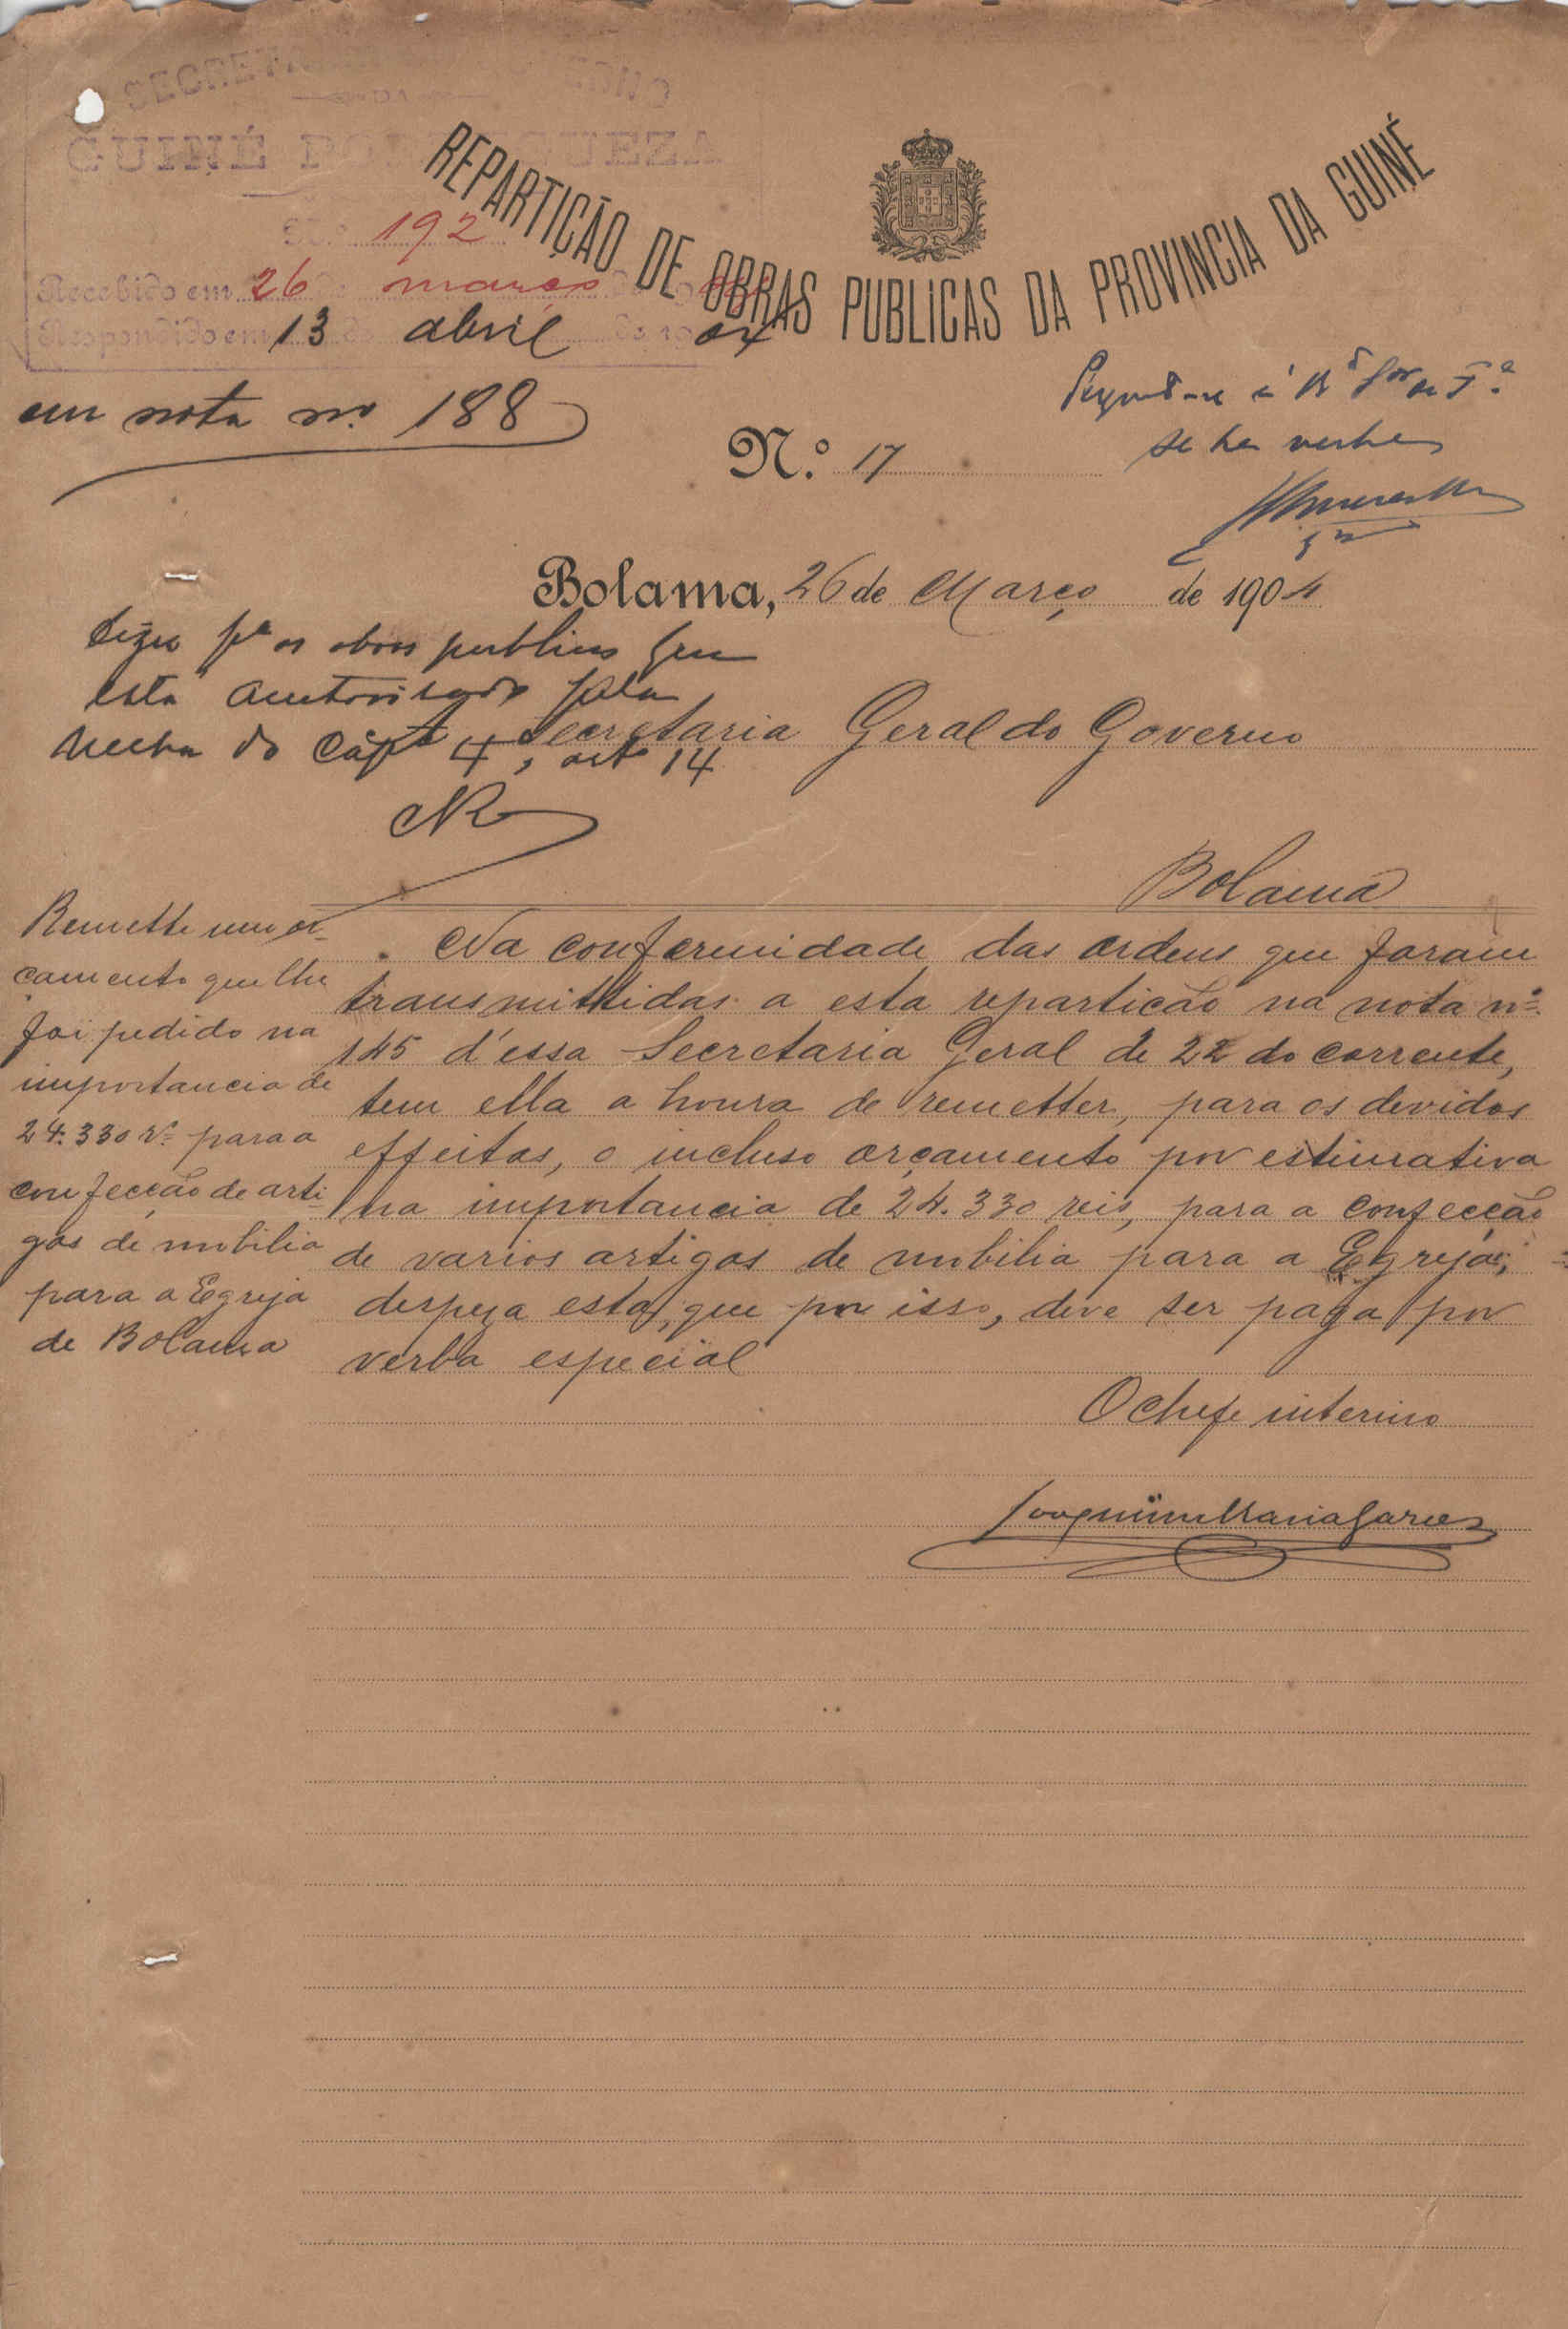 SECRETARIA DO GOVERNO
DA
GUINÉ PORTUGUEZA
N.º 192
Recebido em 26 de março de 190
Respondido em 13 de abril de 1904
em nota nº 188
REPARTIÇÃO DE OBRAS PUBLICAS DA PROVINCIA DA GUINÉ
se ha verba
N.º 17
Bolama, 26 de Março de 1904
Dizer pª as obras publicas que
está autorisado pela
verba do capº 4, artº 14
Secretaria Geral do Governo
Bolama
Remette um or-
çamento que lhe
foi pedido na
importancia de
24.330 rs para a
confecção de arti-
gos de mobilia
para a Egreja
de Bolama
Na conformidade das ordens que foram
transmittidas a esta repartição na nota nº
145 d'essa Secretaria Geral de 22 do corrente,
tem ella a honra de remetter, para os devidos
effeitos, o incluso orçamento por estimativa
na importancia de 24.330 reis, para a confecção
de varios artigos de mobilia para a Egreja;
despeza esta, que por isso, deve ser paga por
verba especial
O chefe interino
Joaquim Maria Garcez